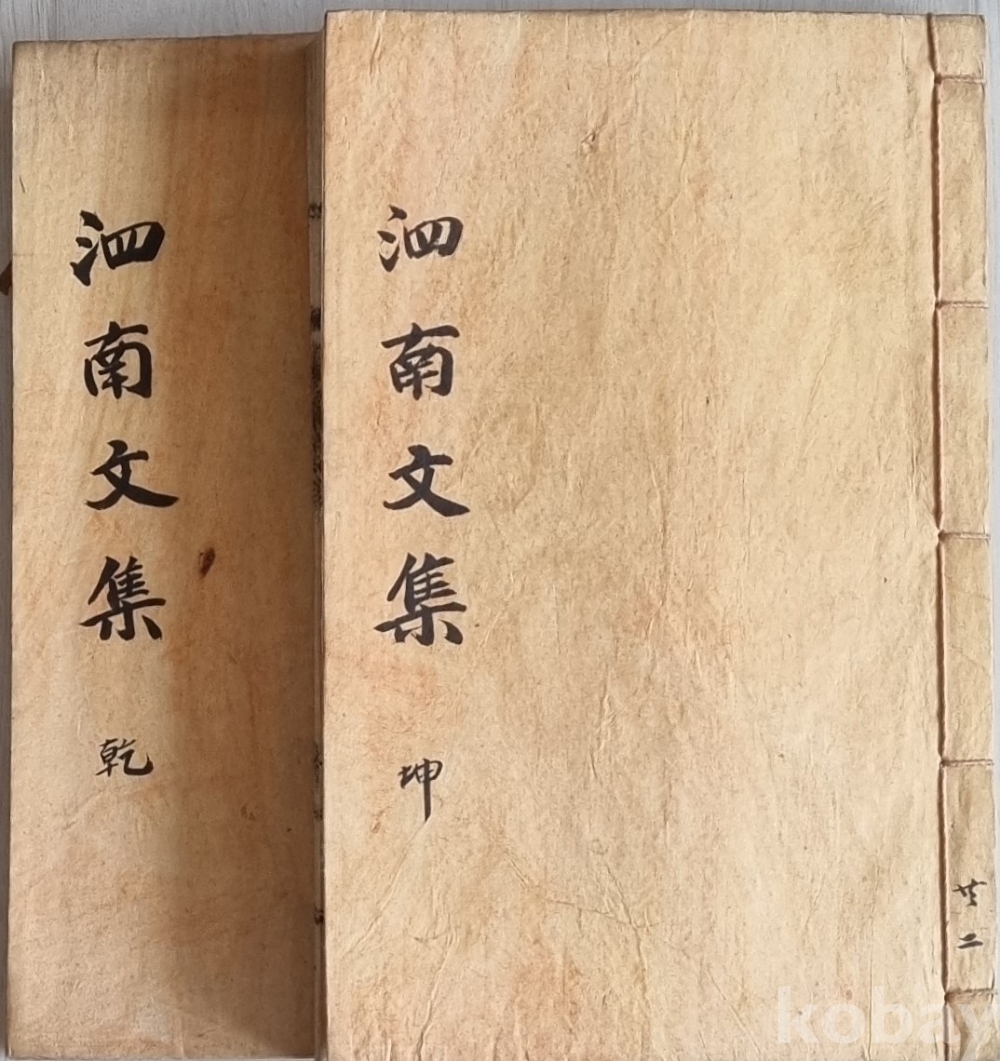 泗南文集 乾
泗南文集 坤
共二
kobay